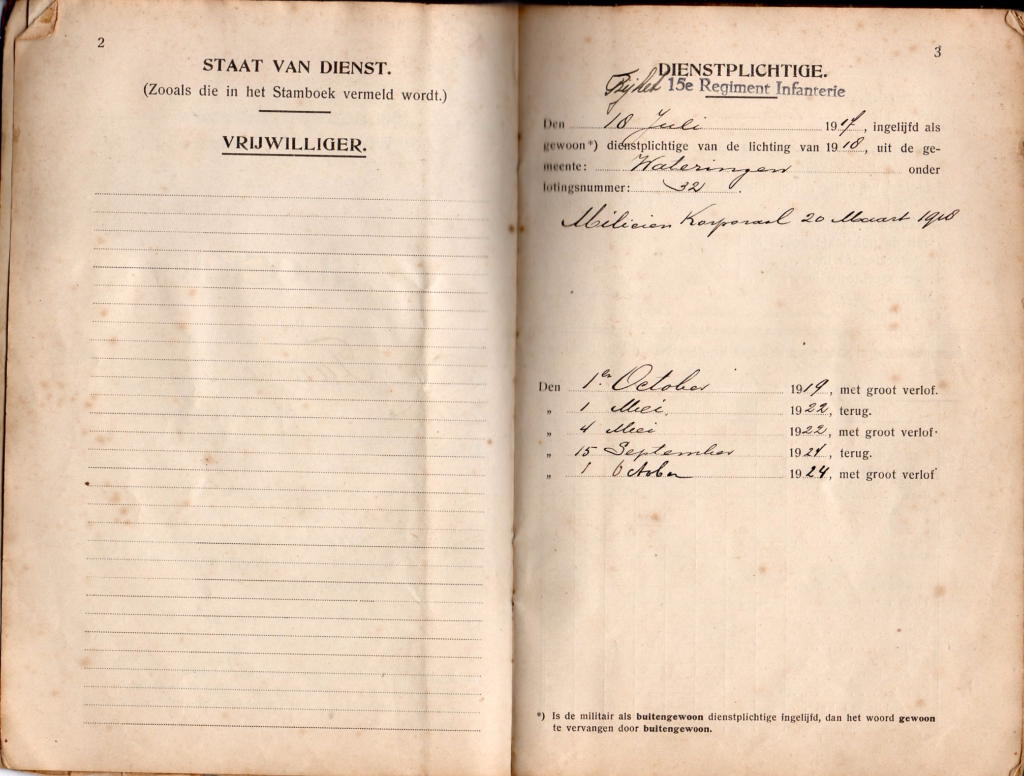 2
STAAT VAN DIENST.
(Zooals die in het Stamboek vermeld wordt.)
VRIJWILLIGER.
3
DIENSTPLICHTIGE.
Bij het 15e Regiment Infanterie
Den 18 Juli 1917, ingelijfd als
gewoon*) dienstplichtige van de lichting van 1918, uit de ge-
meente: Wateringen onder
lotingsnummer: 32.
Milicien Korporaal 20 Maart 1918
Den 1en October 1919, met groot verlof.
„ 1 Mei. 1922, terug.
„ 4 Mei 1922, met groot verlof.
„ 15 September 1924, terug.
„ 1 October 1924, met groot verlof
*) Is de militair als buitengewoon dienstplichtige ingelijfd, dan het woord gewoon
te vervangen door buitengewoon.